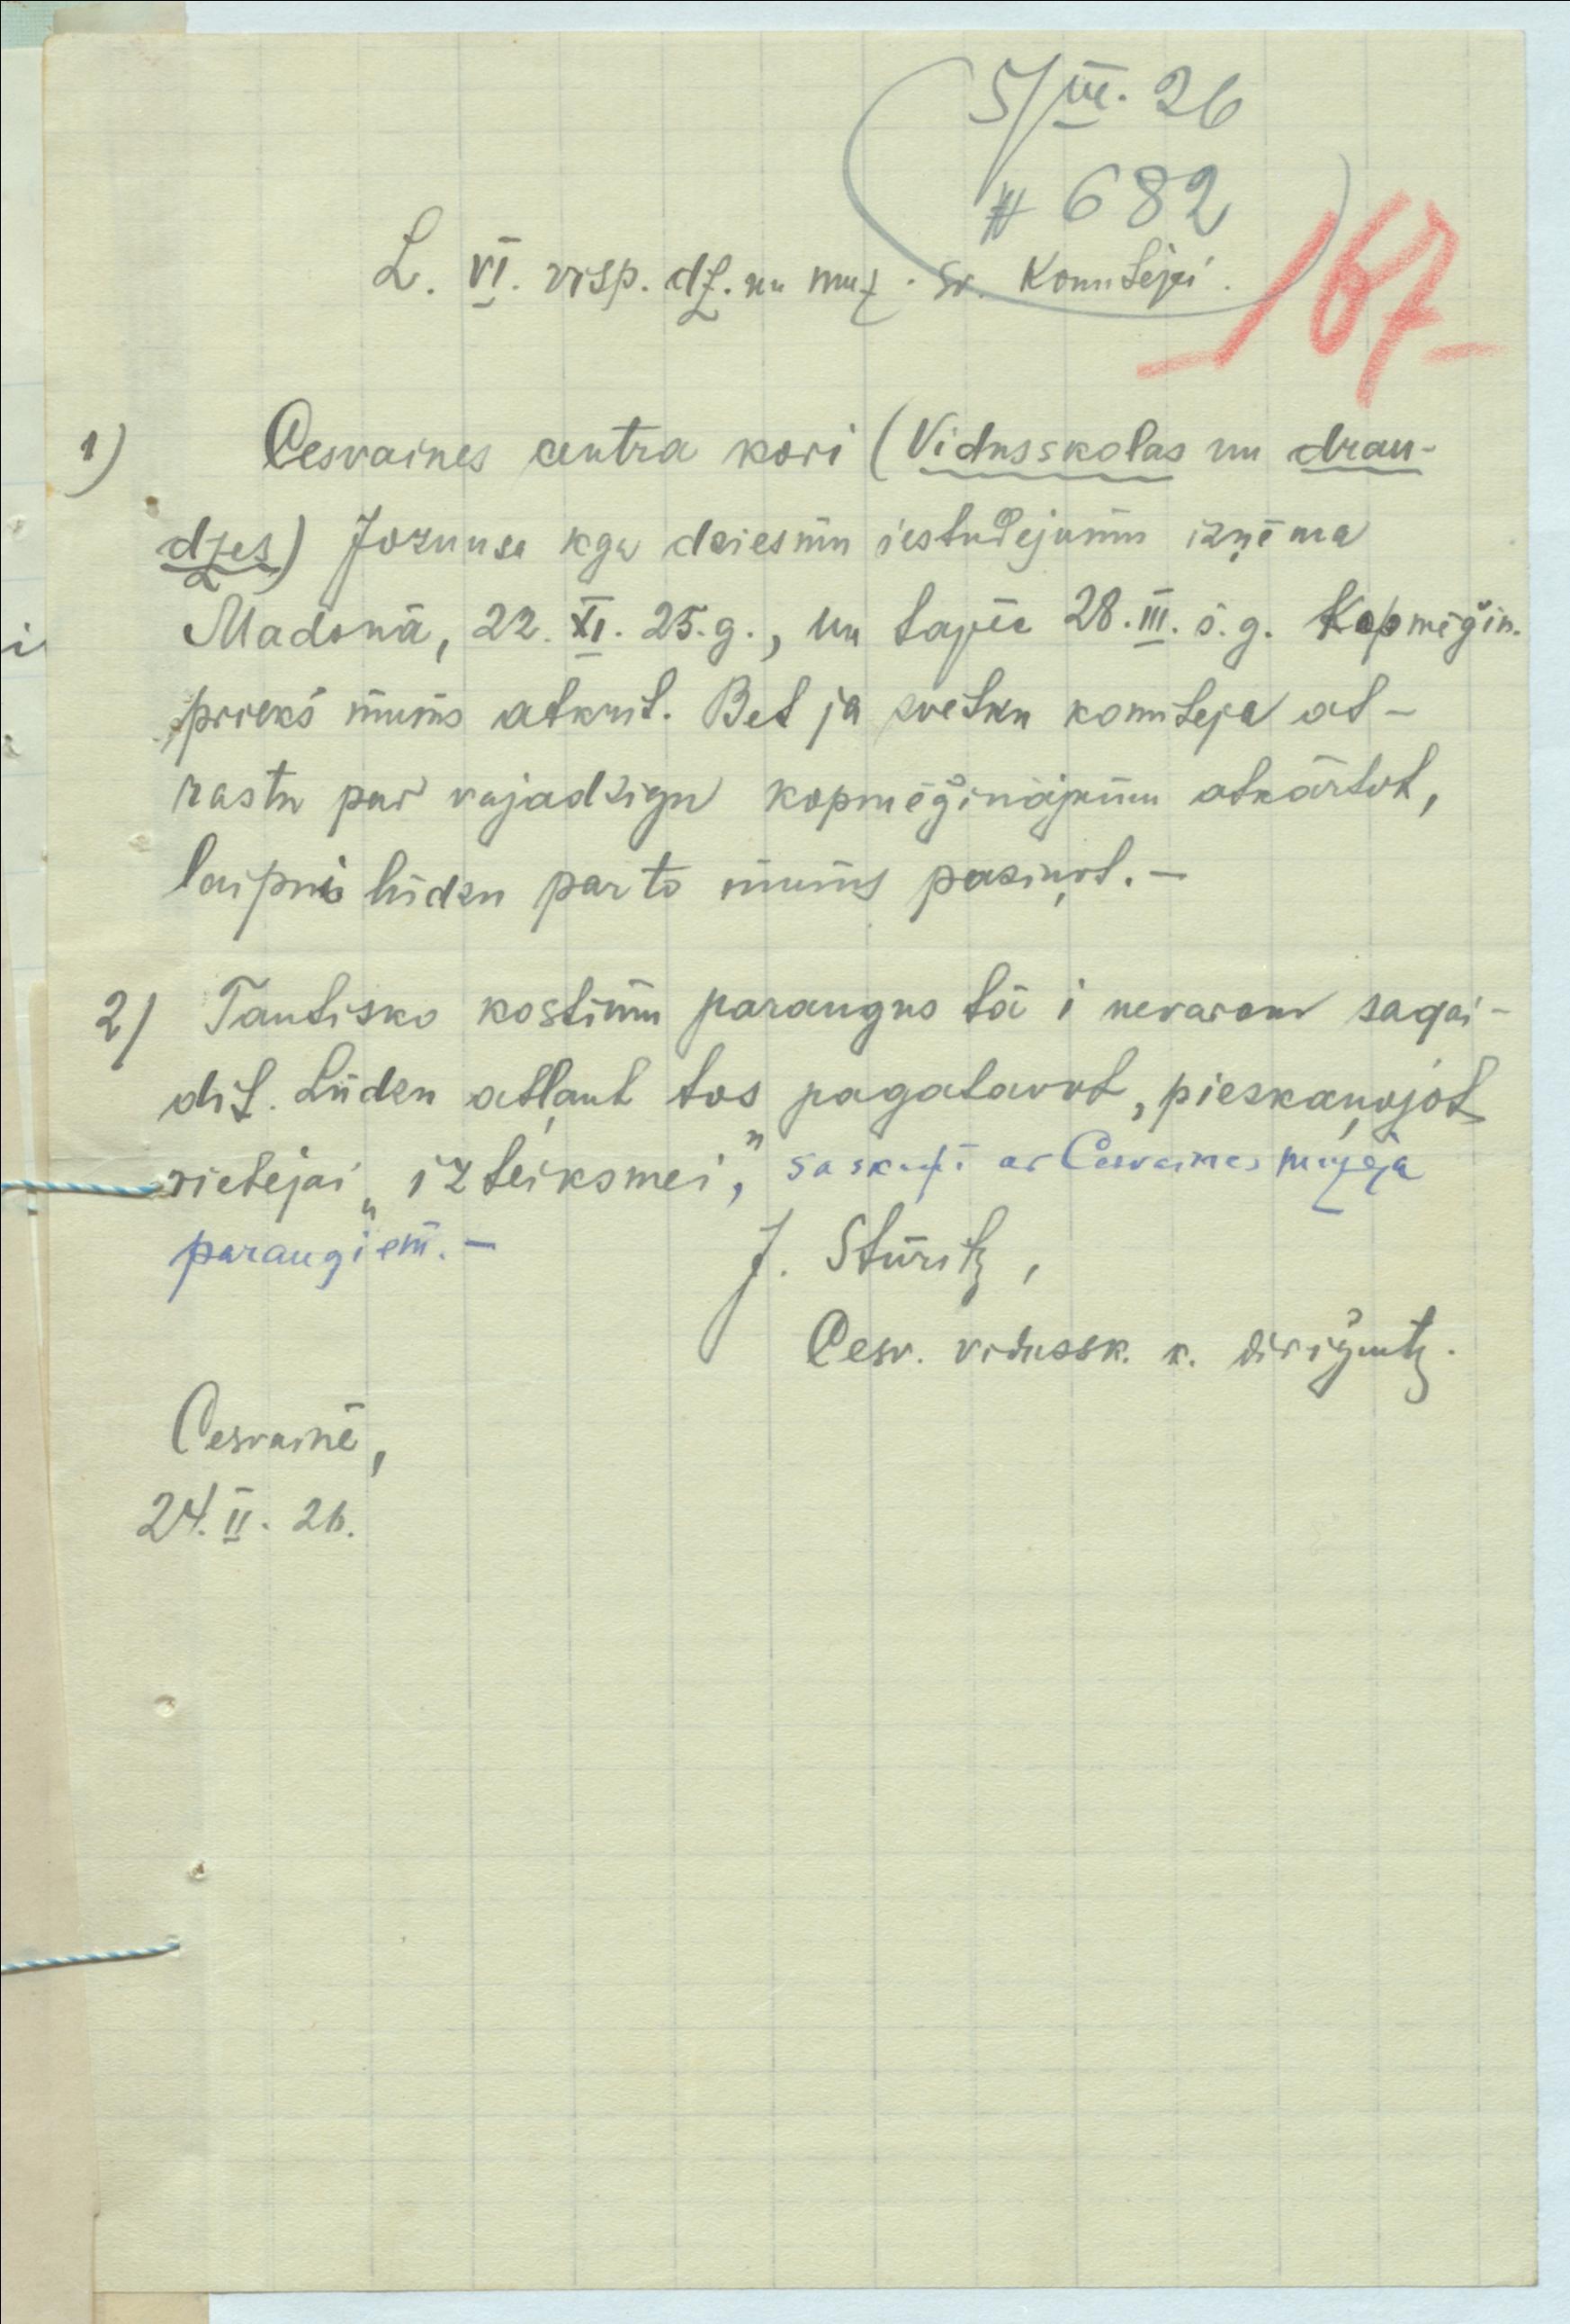 5/III. 26
# 682
167
L. VI. visp. dz. un muz. sv. Komitejai.
1) Cesvaines centra kori (Vidusskolas un drau-
dzes) Jozuusa kga dziesmu iestudējumu izņēma
Madonā, 22. XI. 25. g., un tapēc 28. III. š. g. Kopmēģin.
priekš mums atkrit. Bet ja svētku komiteja at-
rastu par vajadzīgu kopmēģinājumu atkārtot,
laipni lūdzu par to mums paziņot. —
2) Tautisko kostīmu paraugus tā i nevaram sagai-
dīt. Lūdzu atļaut tos pagatavot, pieskaņojot
vietējai „izteiksmei," saskaņā ar Cesvaines muzeja
paraugiem. —
J. Stūrītz,
Cesv. vidussk. k. diriģentz.
Cesvainē,
24. II. 26.